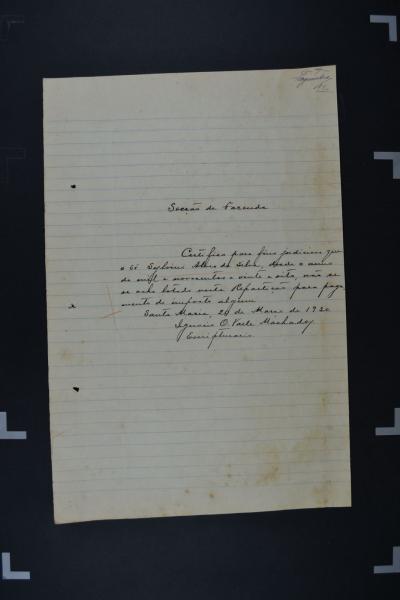 Secção de Fazenda
Certifico para fins judiciaes que
o Sr. Sylvino Alves da Silva, desde o anno
de mil e novecentos e vinte e oito, não se
se acha lotado nesta Repartição para paga
mento de imposto algum
Santa Maria, 24 de Março de 1930
Ignacio O. Valle Machado
Escripturario